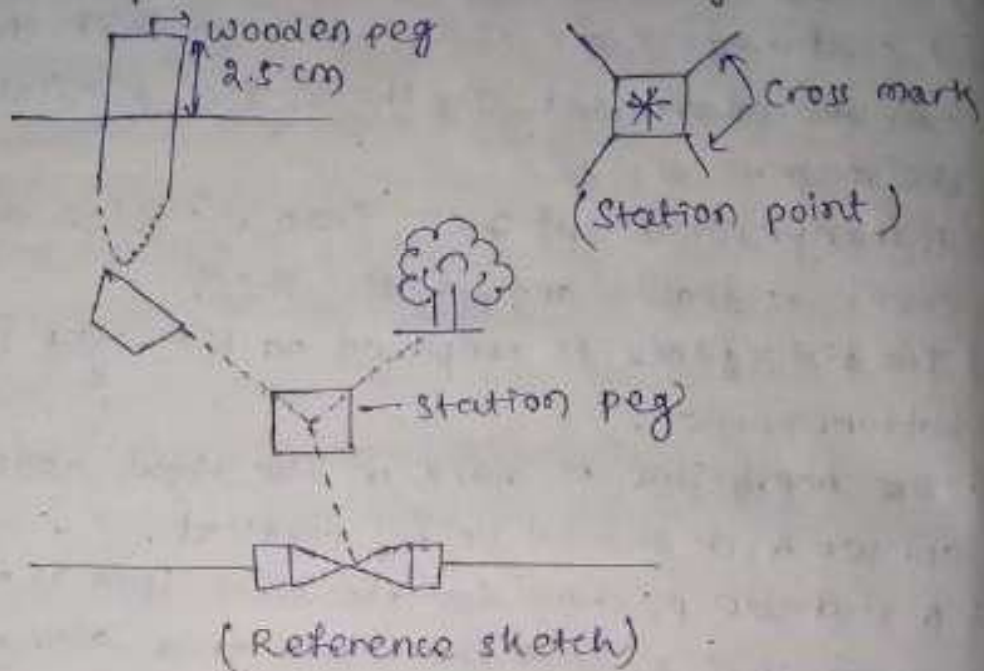 Wooden peg
2.5 cm
Cross mark
(Station point)
station peg
(Reference sketch)